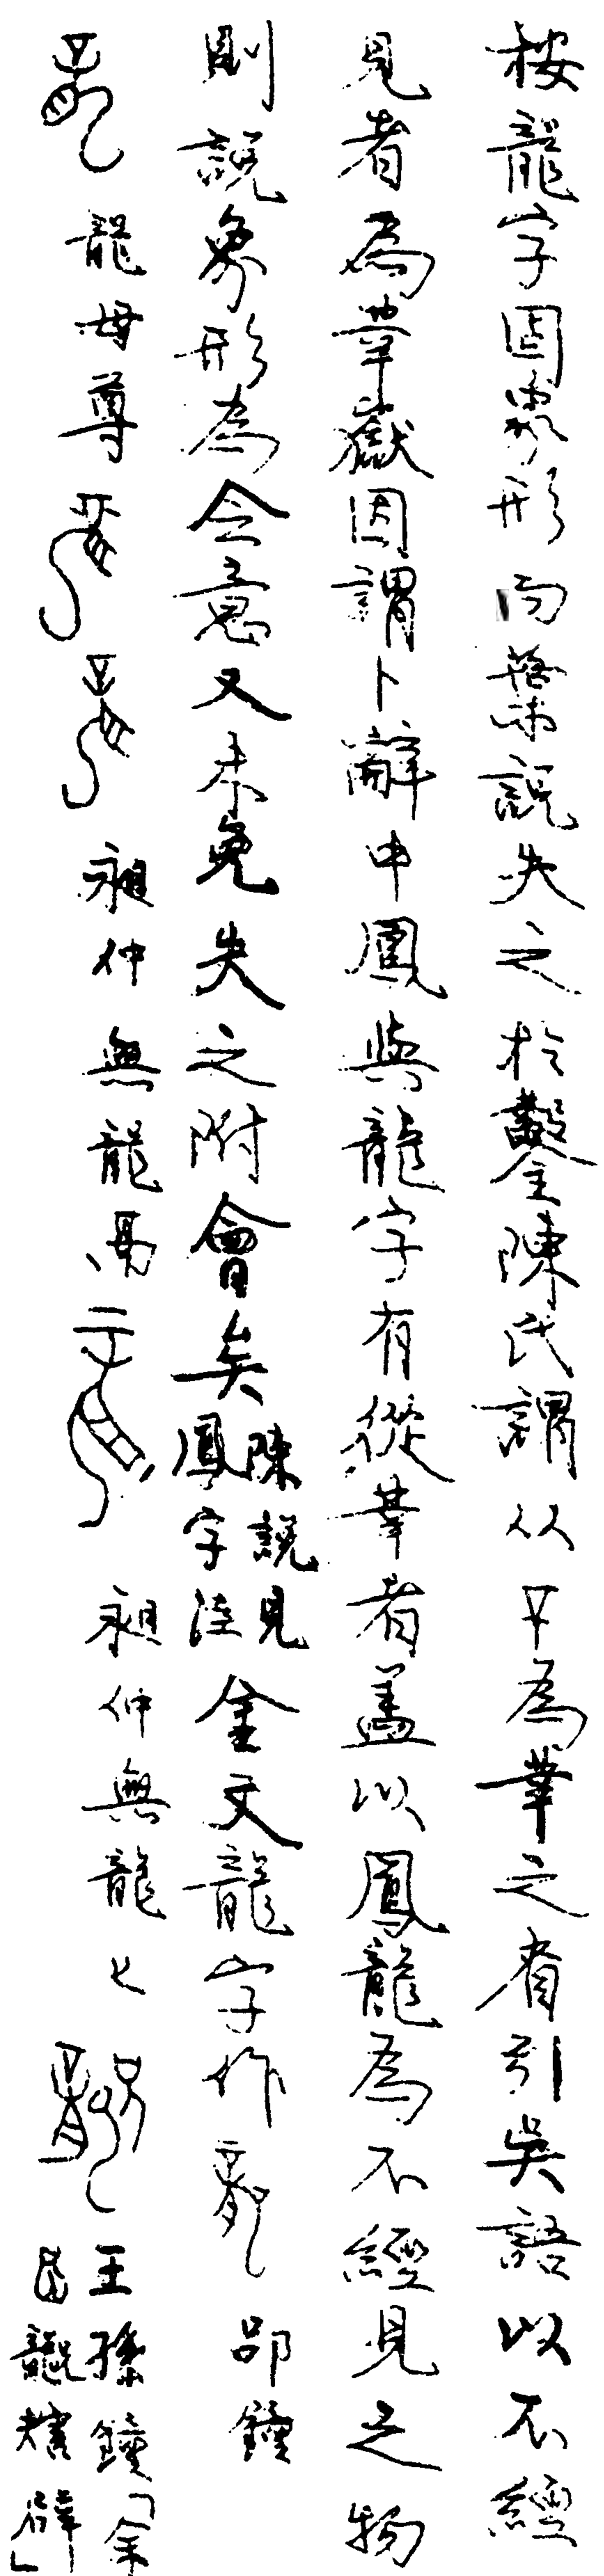 按龍字固象形而葉說失之於鑿陳氏謂从䇂為䇂之省引吳語以不經
見者為䇂嶽因謂卜辭中鳳與龍字有從䇂者蓋以鳳龍為不經見之物
則說象形為會意又未免失之附會矣陳說見鳳字注金文龍字作 邵鐘
龍母尊 昶仲無龍鬲 昶仲無龍匕 王孫鐘「余龏